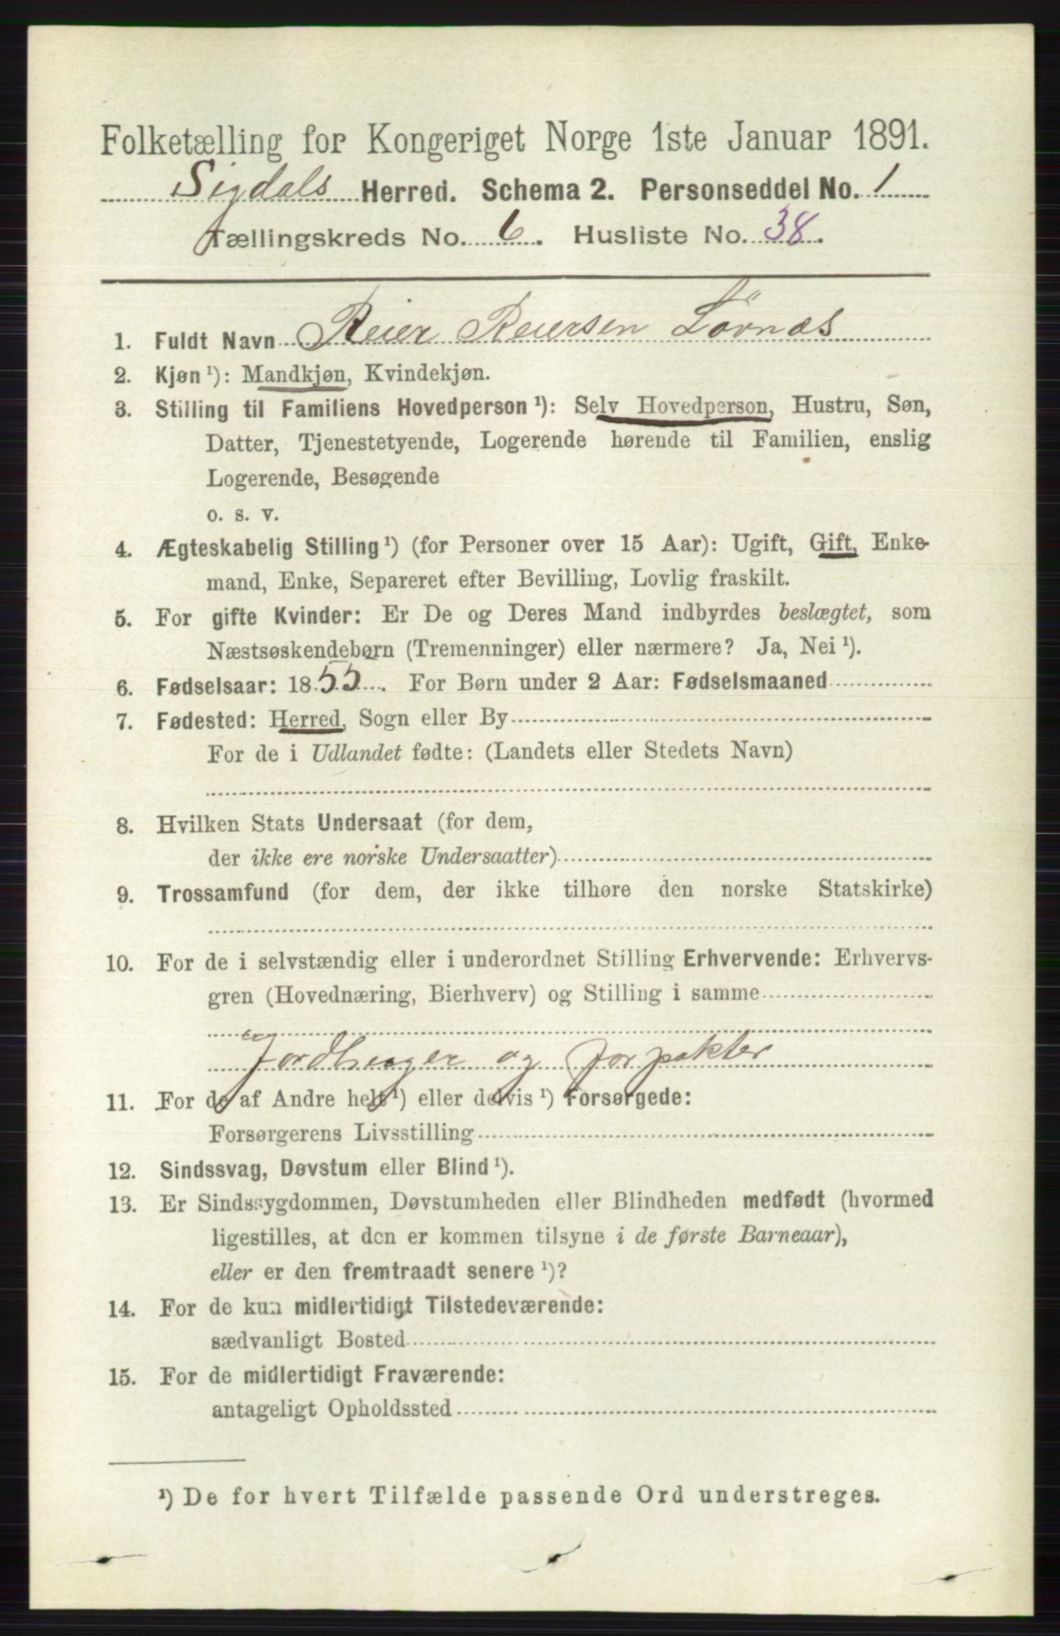 Folketælling for Kongeriget Norge 1ste Januar 1891.
Sigdals Herred. Schema 2. Personseddel No. 1
Tællingskreds No. 6. Husliste No. 38.
1. Fuldt Navn Reier Reiersen Lövnæs
2. Kjøn ¹): Mandkjøn, Kvindekjøn.
3. Stilling til Familiens Hovedperson ¹): Selv Hovedperson, Hustru, Søn,
Datter, Tjenestetyende, Logerende hørende til Familien, enslig
Logerende, Besøgende
o. s. v.
4. Ægteskabelig Stilling ¹) (for Personer over 15 Aar): Ugift, Gift, Enke-
mand, Enke, Separeret efter Bevilling, Lovlig fraskilt.
5. For gifte Kvinder: Er De og Deres Mand indbyrdes beslægtet, som
Næstsøskendebørn (Tremenninger) eller nærmere? Ja, Nei ¹).
6. Fødselsaar: 1855. For Børn under 2 Aar: Fødselsmaaned
7. Fødested: Herred, Sogn eller By
For de i Udlandet fødte: (Landets eller Stedets Navn)
8. Hvilken Stats Undersaat (for dem,
der ikke ere norske Undersaatter)
9. Trossamfund (for dem, der ikke tilhøre den norske Statskirke)
10. For de i selvstændig eller i underordnet Stilling Erhvervende: Erhvervs-
gren (Hovednæring, Bierhverv) og Stilling i samme
Jordbruger og Forpakter
11. For de af Andre helt ¹) eller delvis ¹) Forsørgede:
Forsørgerens Livsstilling
12. Sindssvag, Døvstum eller Blind ¹).
13. Er Sindssygdommen, Døvstumheden eller Blindheden medfødt (hvormed
ligestilles, at den er kommen tilsyne i de første Barneaar),
eller er den fremtraadt senere ¹)?
14. For de kun midlertidigt Tilstedeværende:
sædvanligt Bosted
15. For de midlertidigt Fraværende:
antageligt Opholdssted
¹) De for hvert Tilfælde passende Ord understreges.